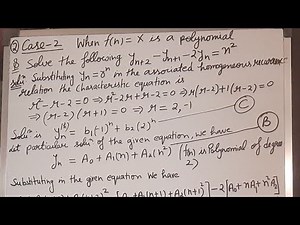 ② Case-2 When f(n) = X is a polynomial
Q Solve the following y_{n+2} - y_{n+1} - 2y_n = n²
Solⁿ Substituting y_n = r^n in the associated homogeneous recurrence
relation the characteristic equation is
r² - r - 2 = 0 ⇒ r² - 2r + r - 2 = 0 ⇒ r(r-2) + 1(r-2) = 0
⇒ (r-2)(r+1) = 0 ⇒ r = 2, -1
Solⁿ is y_n^{(h)} = b₁(-1)^n + b₂(2)^n C
Let particular solⁿ of the given equation, we have B
y_n = A₀ + A₁(n) + A₂(n²) (f(n) is polynomial of degree
2)
Substituting in the given equation We have
[A₀ + A₁(n+1) + A₂(n+1)²] - 2[A₀ + nA₁ + n²A₂]